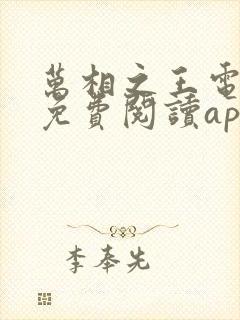 萬相之王電
免費閱讀ap
李奉先